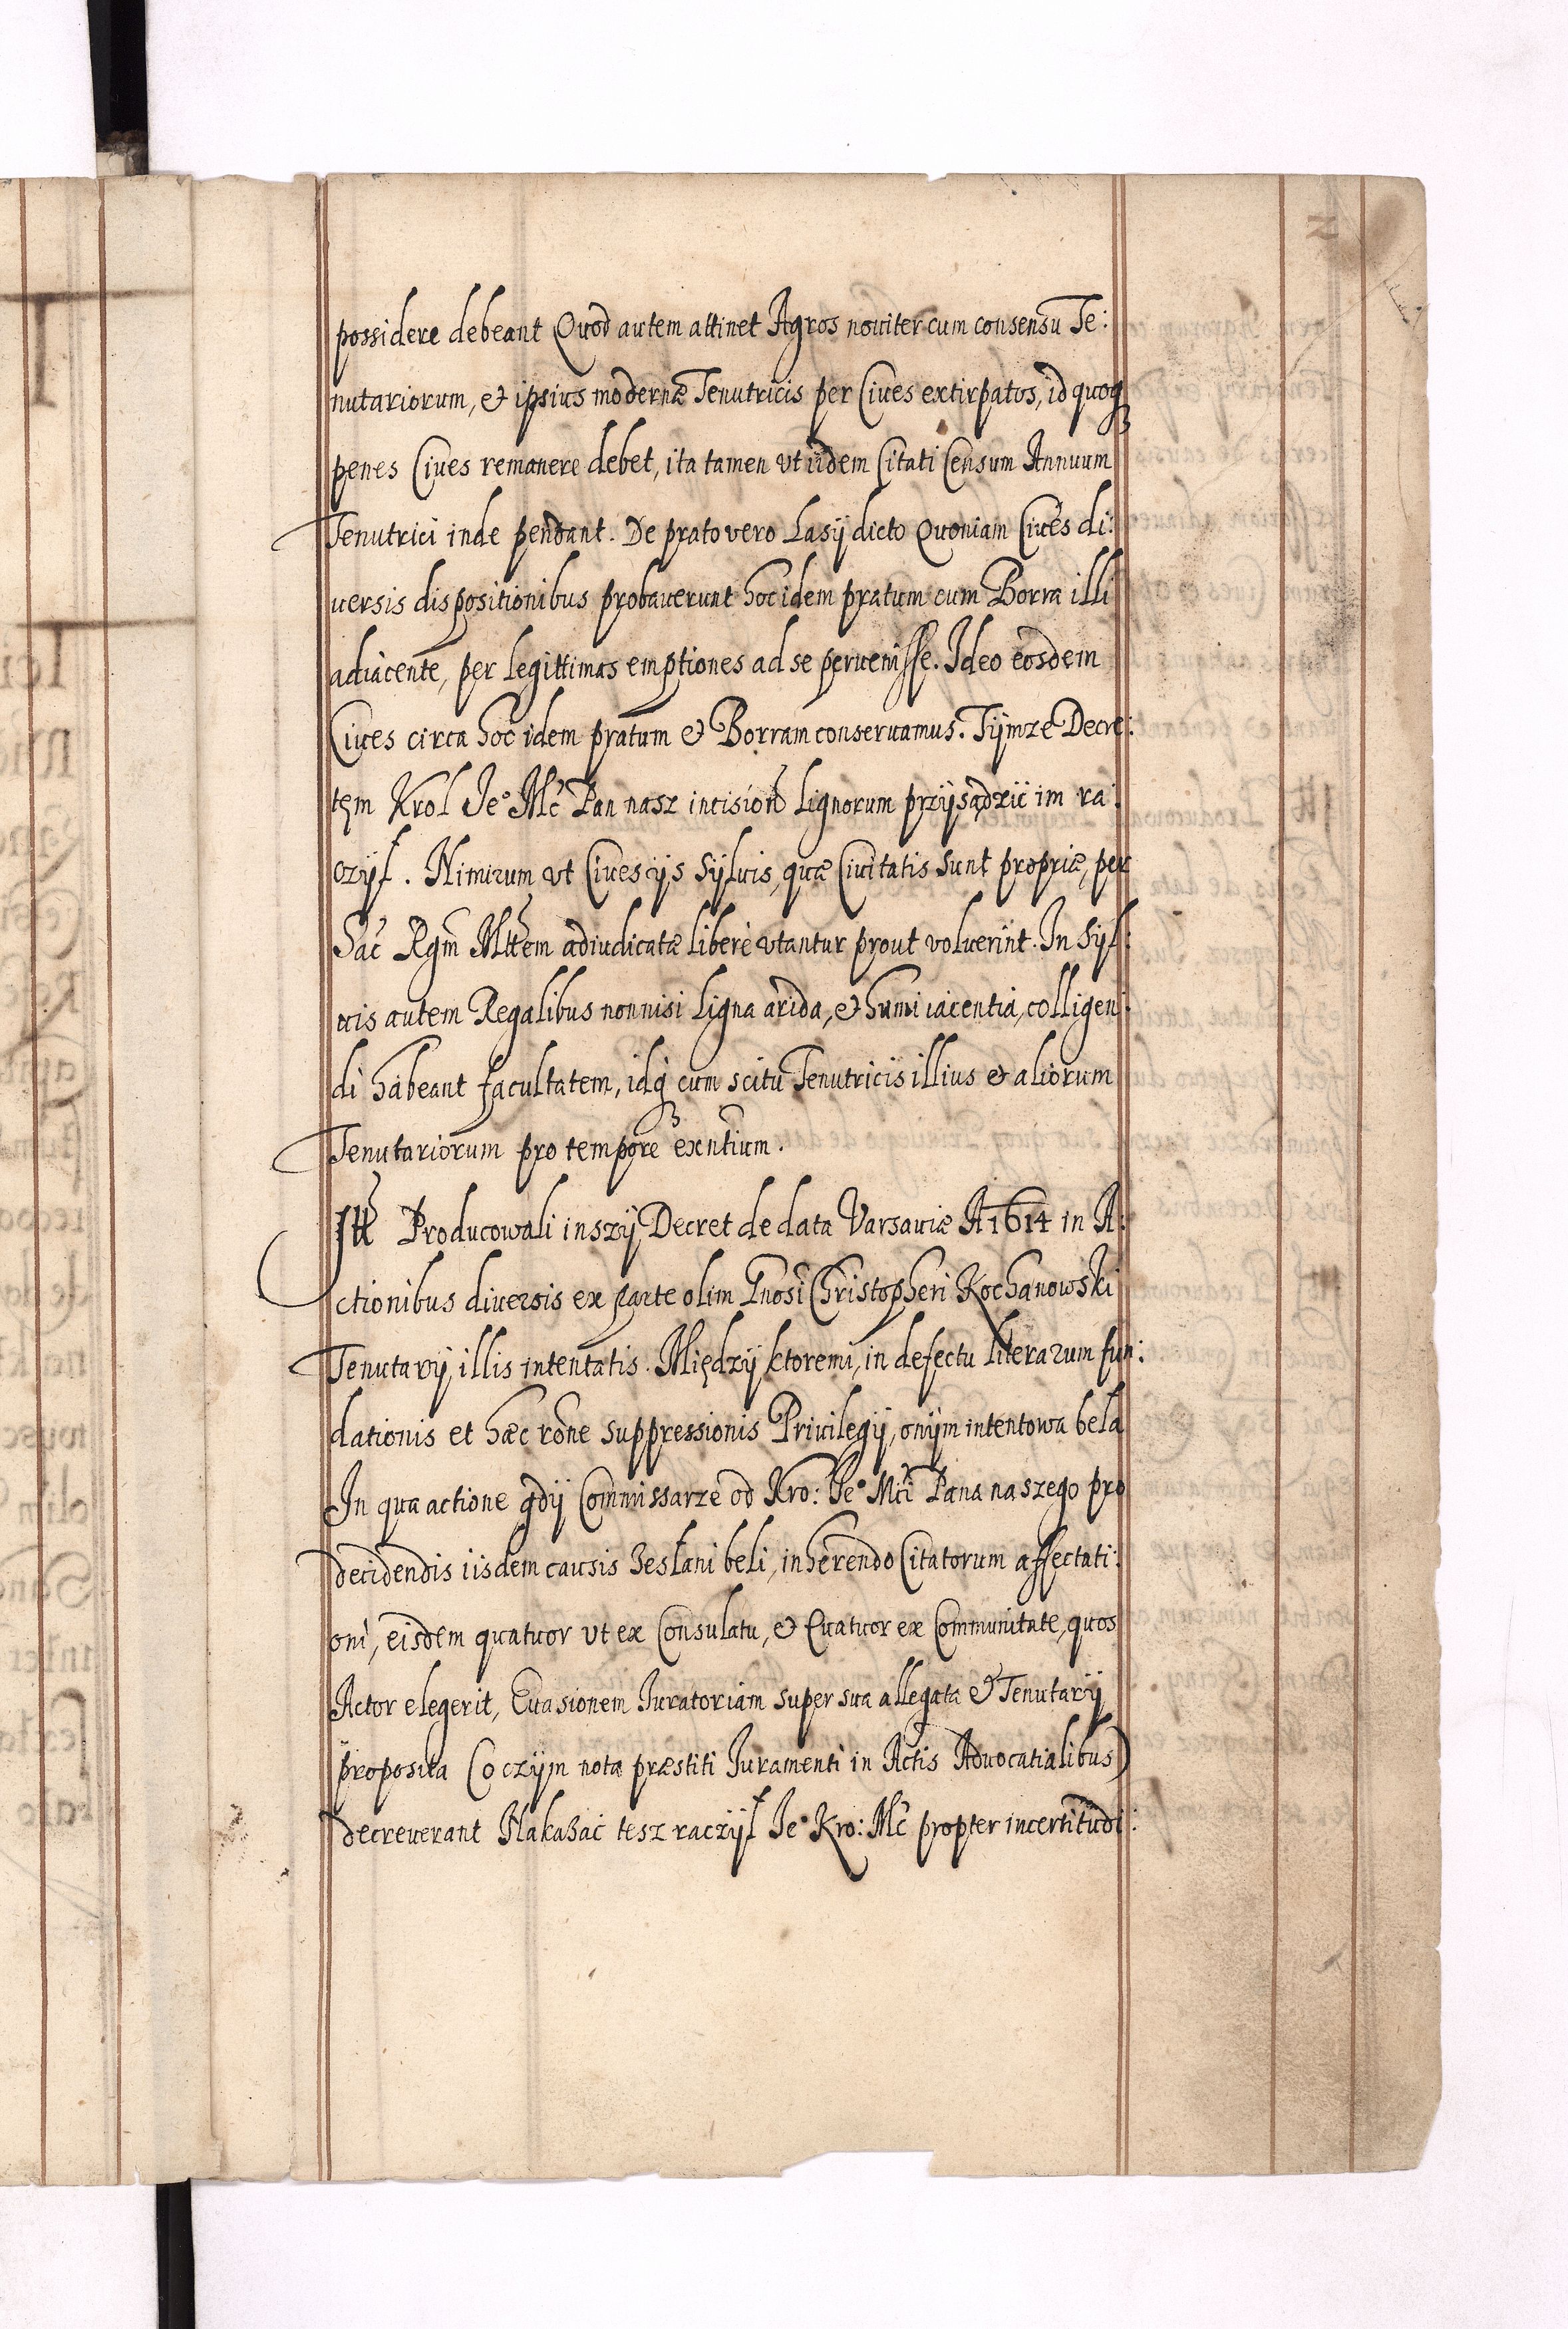 possidere debeant Quod autem attinet Agros nouiter cum consensu Te:
nutariorum, & ipsius modernæ Tenutricis per Ciues extirpatos, id quoq
penes Ciues remanere debet, ita tamen vt iidem Citati Censum Annuum
Tenutrici inde pendant. De prato vero Lasÿ dicto Quoniam Ciues di:
uersis dispositionibus probauerunt hoc idem pratum cum Borra illi
adiacente, per legittimas emptiones ad se peruenisse. Ideo eosdem
Ciues circa hoc idem pratum & Borram conseruamus. Tÿmze Decre:
tęm Krol Je° Mć Pan nasz incision Lignorum przÿsądzić im ra:
czÿł. Nimirum vt Ciues ijs Sÿluis, quæ Ciuitatis sunt propriæ, per
Sac Rgm Mttem adiudicatæ liberè vtantur prout voluerint. In Sÿl:
uis autem Regalibus nonnisi Ligna arida, & humi iacentia, colligen:
di habeant facultatem, idq cum scitu Tenutricis illius & aliorum
Tenutariorum pro tempore exntium.
Itt Producowali inszÿ Decret de data Varsauiæ A 1614 in A:
ctionibus diuersis ex parte olim Gnosi Christopheri Kochanowski
Tenutarÿ, illis intentatis. Międzÿ ktoremi, in defectu literarum fun:
dationis et hæc rone suppressionis Priuilegÿ, onÿm intentowa bela
In qua actione gdÿ Commissarze od Kro: Je° Mci Pana naszego pro
decidendis iisdem causis Zesłani beli, inherendo Citatorum affectati:
oni, eisdem quatuor vt ex Consulatu, & Quatuor ex Communitate, quos
Actor elegerit, Euasionem Iuratoriam super sua allegata & Tenutarÿ
proposita (o czÿm nota præstiti Iuramenti in Actis Aduocatialibus)
decreuerant Nakazać tesz raczÿł Je° Kro: Mć propter incertitudi: